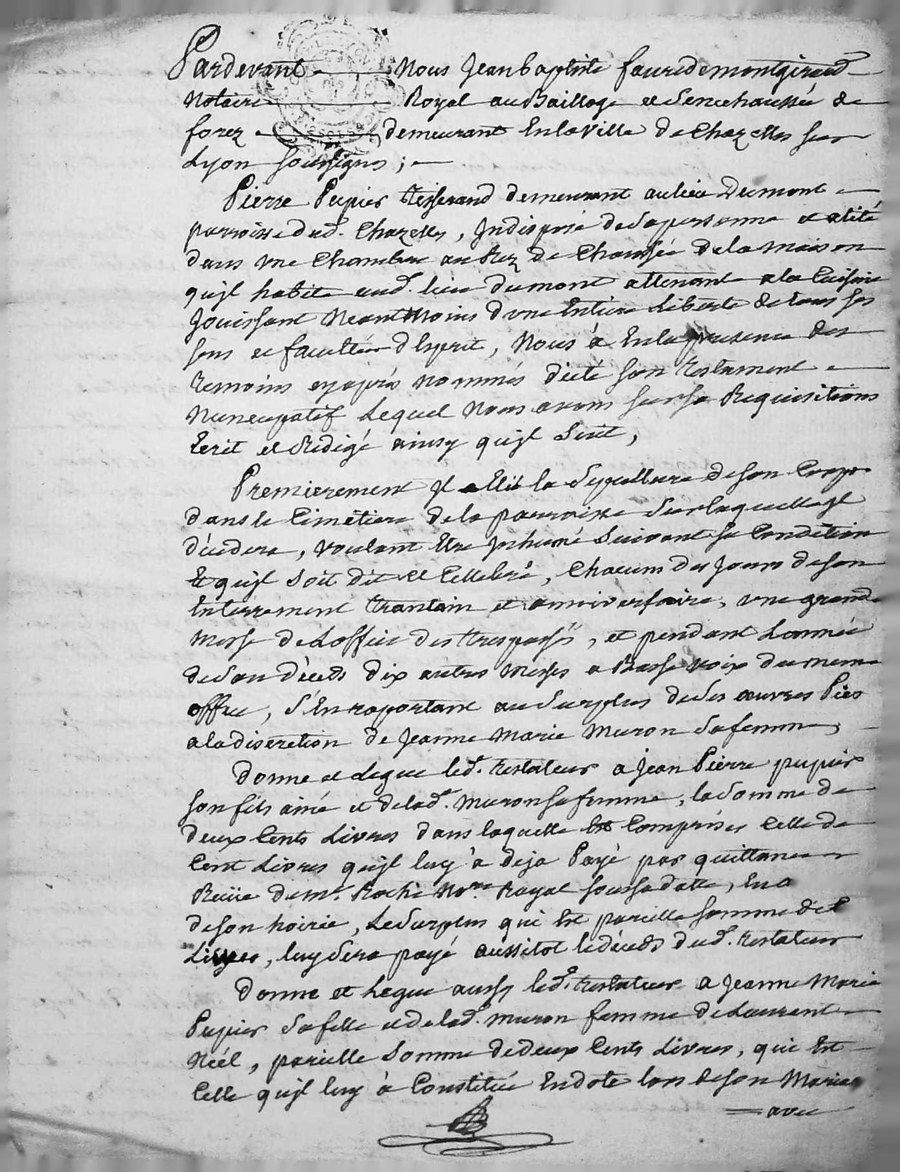 Pardevant Nous Jean Baptiste faure de montgiraud
Notaire Royal au Bailliage et Senechaussée de
forez demeurant En la Ville de Chazelles sur
Lyon soussigné ;
Pierre Pupier tisserand demeurant au lieu Dumont
parroisse dud. Chazelles, Indisposé de Sa personne et alité
dans une Chambre au Rez de Chaussée de la maison
qu'jl habite aud. lieu dumont attenant a la Cuisine
Jouissant Neantmoins d'une Entiere Liberté de tous ses
sens et facultés d'Esprit, Nous à En la presence des
temoins cy après nommés dicté son testament
Nuncupatif Lequel Nous avons sur sa Requisitions
Ecrit et Redigé ainsy qu'jl Suit,
Premierement jl la Sepulture de son Corps
dans le Cimetiere de la parroisse Sur laquelle jl
décedera, voulant Etre jnhumé Suivant sa Condition
Et qu'jl soit dit et Cellebré, Chacuns des Jours de son
Enterrement trantain et anniversaire, une grand
Messe de Loffice des trespassés, et pendant Lannée
de Son décéds dix autres Messes a Basse voix du meme
office, S'En raportant au Surplus de Ses œuvres Pies
a la discretion de Jeanne Marie Muron Sa femme,
Donne et Legue led. testateur a Jean Pierre pupier
son fils ainé et de lad. Muron sa femme, la Somme de
deux Cents Livres dans laquelle Est Comprises Celle de
Cent Livres qu'jl luy à deja Payé par quittance
Reüe de me. Roche Nore. Royal sous sa datte, En a
de son hoirie, Le Surplus qui Est pareille somme de C
Livres, luy Sera payé aussitot le décéds dud. testateur
Donne et Legue aussy led. testateur a Jeanne Marie
Pupier Sa fille et de lad. Muron femme de Laurent
Néel, pareille Somme de deux Cents Livres, qui Est
Celle qu'jl luy à Constituée En dote lors de son Mariage
avec